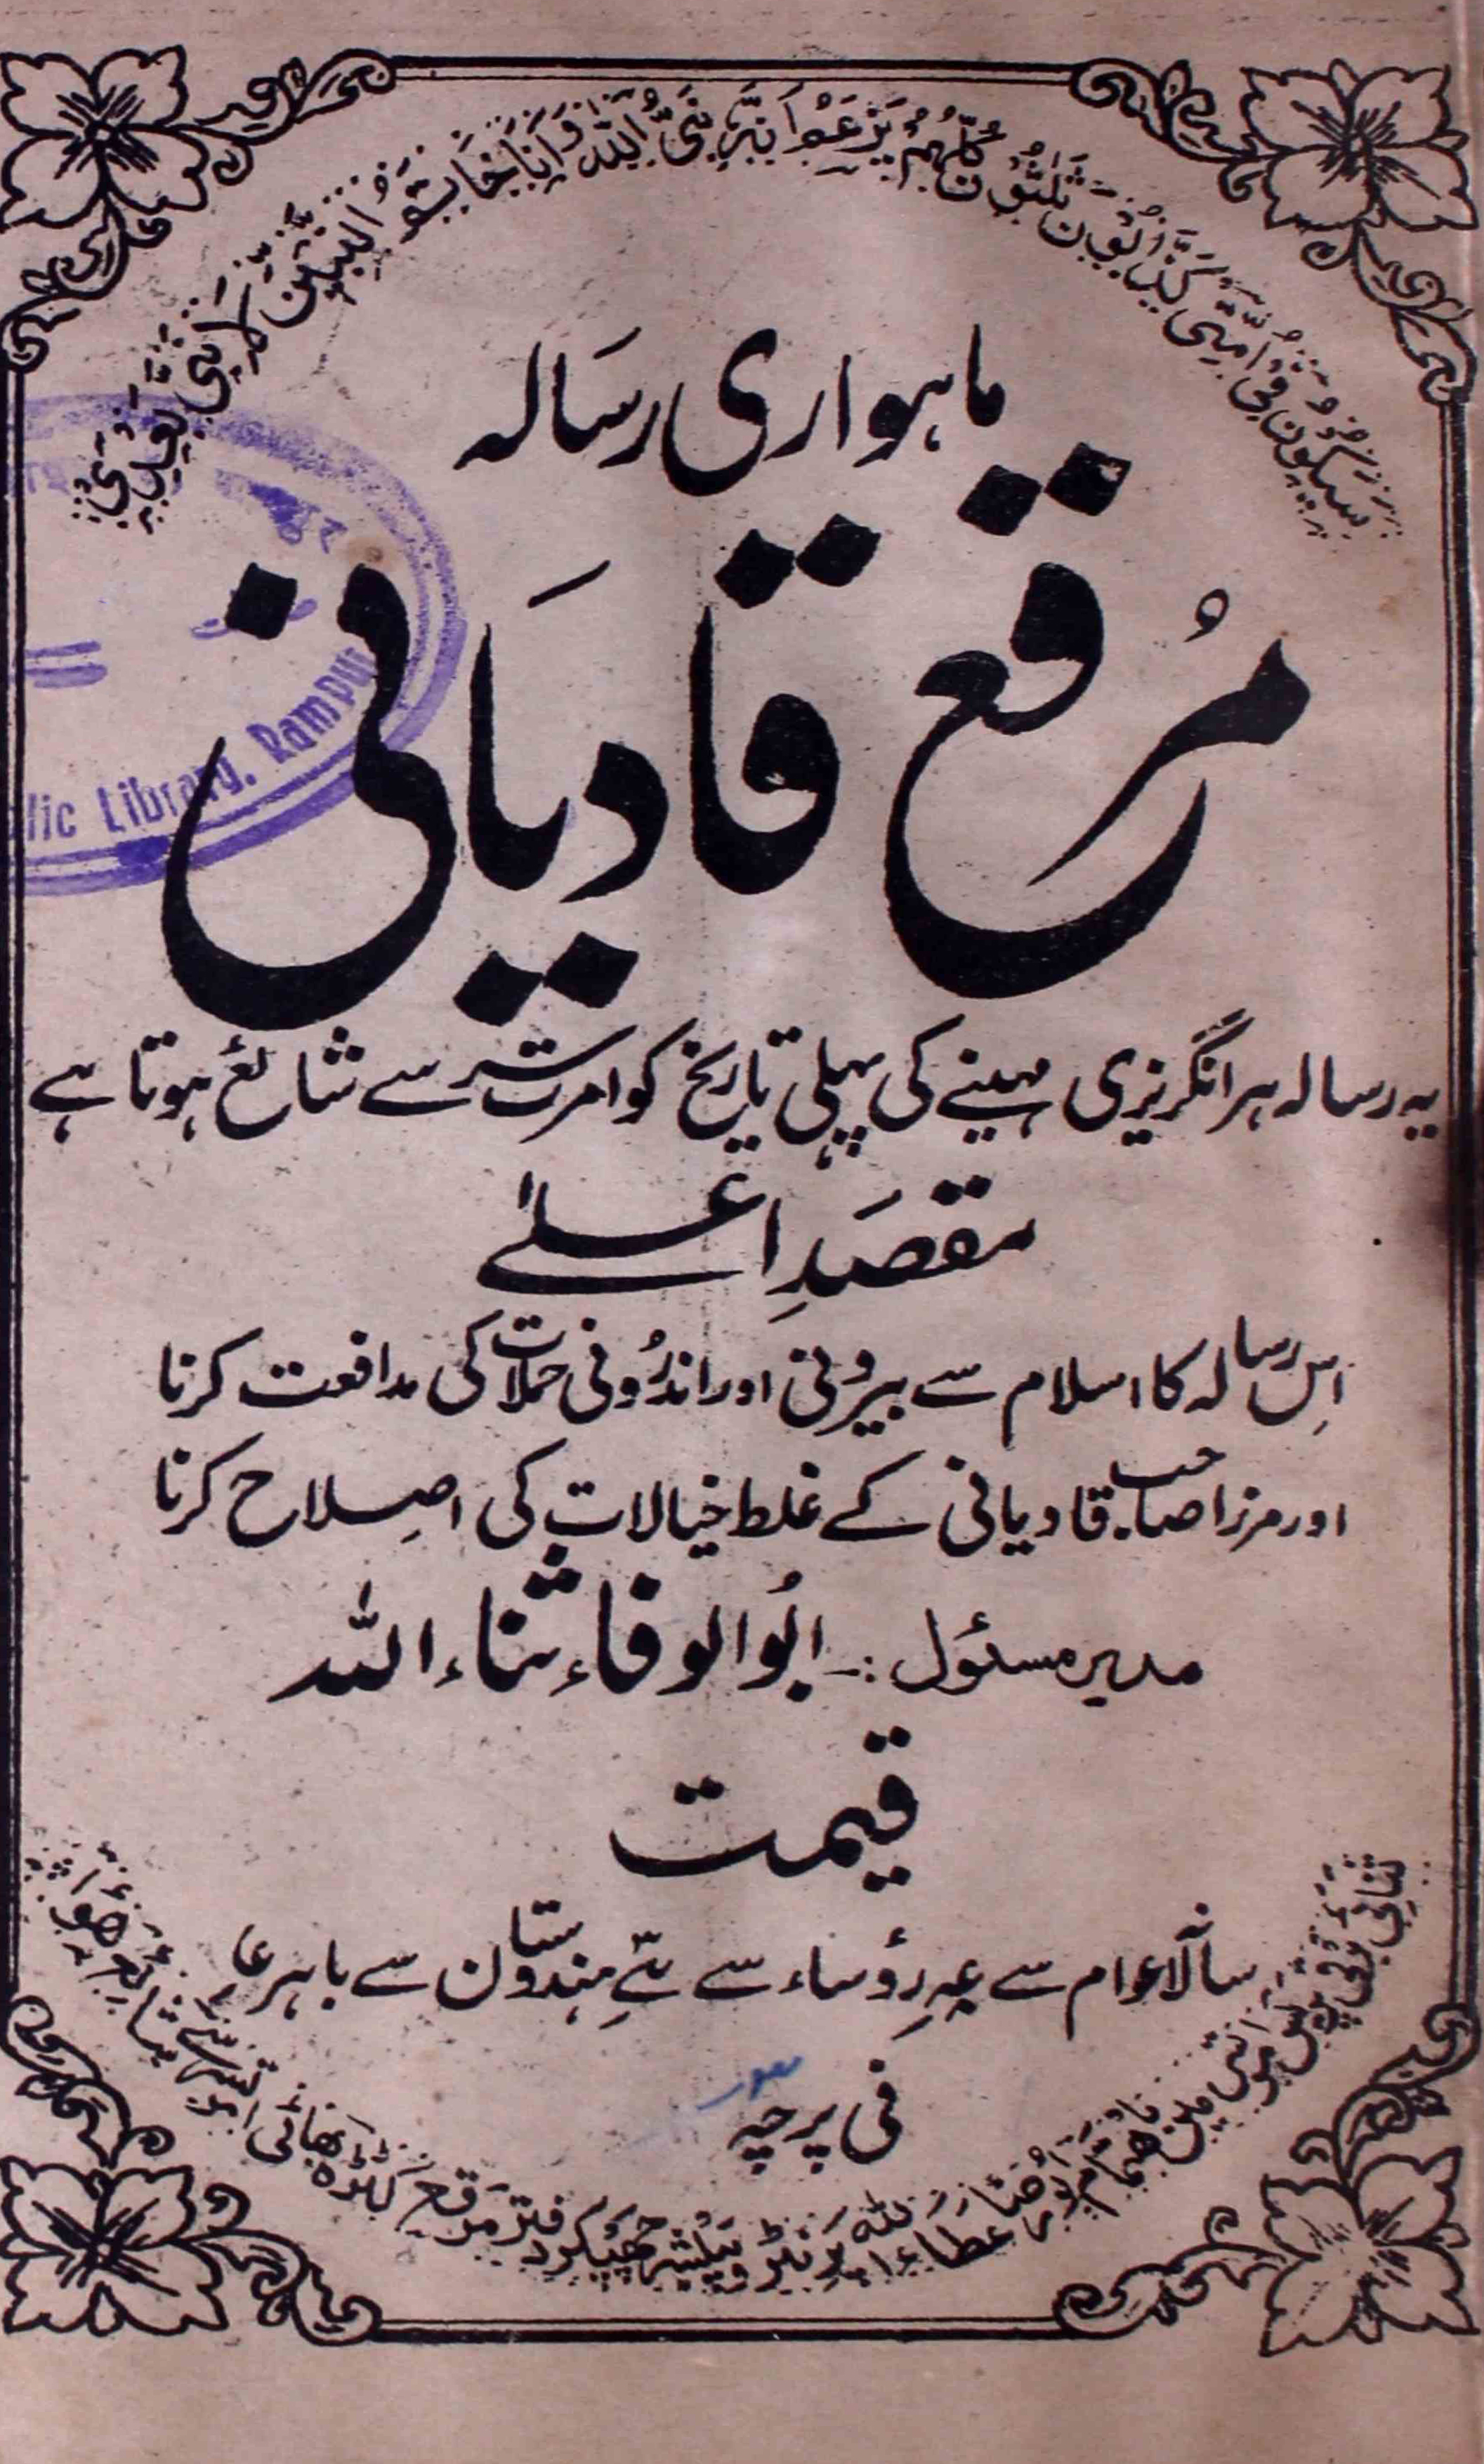 سیکون فی امتی کذابون ثلثون کلہم یزعم انہ نبی اللہ وانا خاتم النبیین لا نبی بعدی
ماہواری رسالہ
مرقع قادیانی
یہ رسالہ ہر انگریزی مہینے کی پہلی تاریخ کو امرتسر سے شائع ہوتا ہے
مقصدِ اعلےٰ
اِس رسالہ کا اسلام سے بیرونی اور اندرُونی حملات کی مدافعت کرنا
اور مرزا صاحب قادیانی کے غلط خیالات کی اصلاح کرنا
مدیر مسئول :- ابُو الوفاء ثناء اللہ
قیمت
سالانہ عوام سے رؤساء سے ہندوستان سے باہر
فی پرچہ
ثنائی برقی پریس امرتسر میں باہتمام ابو رضا عطاء اللہ پرنٹر و پبلشر چھپکر دفتر مرقع کٹڑہ بھائی امرتسر سے شائع ہوا
lic Library, Rampur